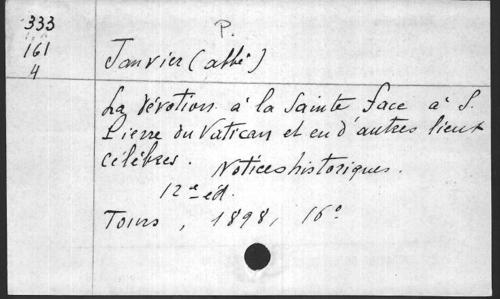 333
161
4
P.
Janvier (abbé)
La Dévotion à la Sainte Face à S.
Pierre du Vatican et en d'autres lieux
célèbres.
Notices historiques.
12e éd.
Tours, 1898, 16°